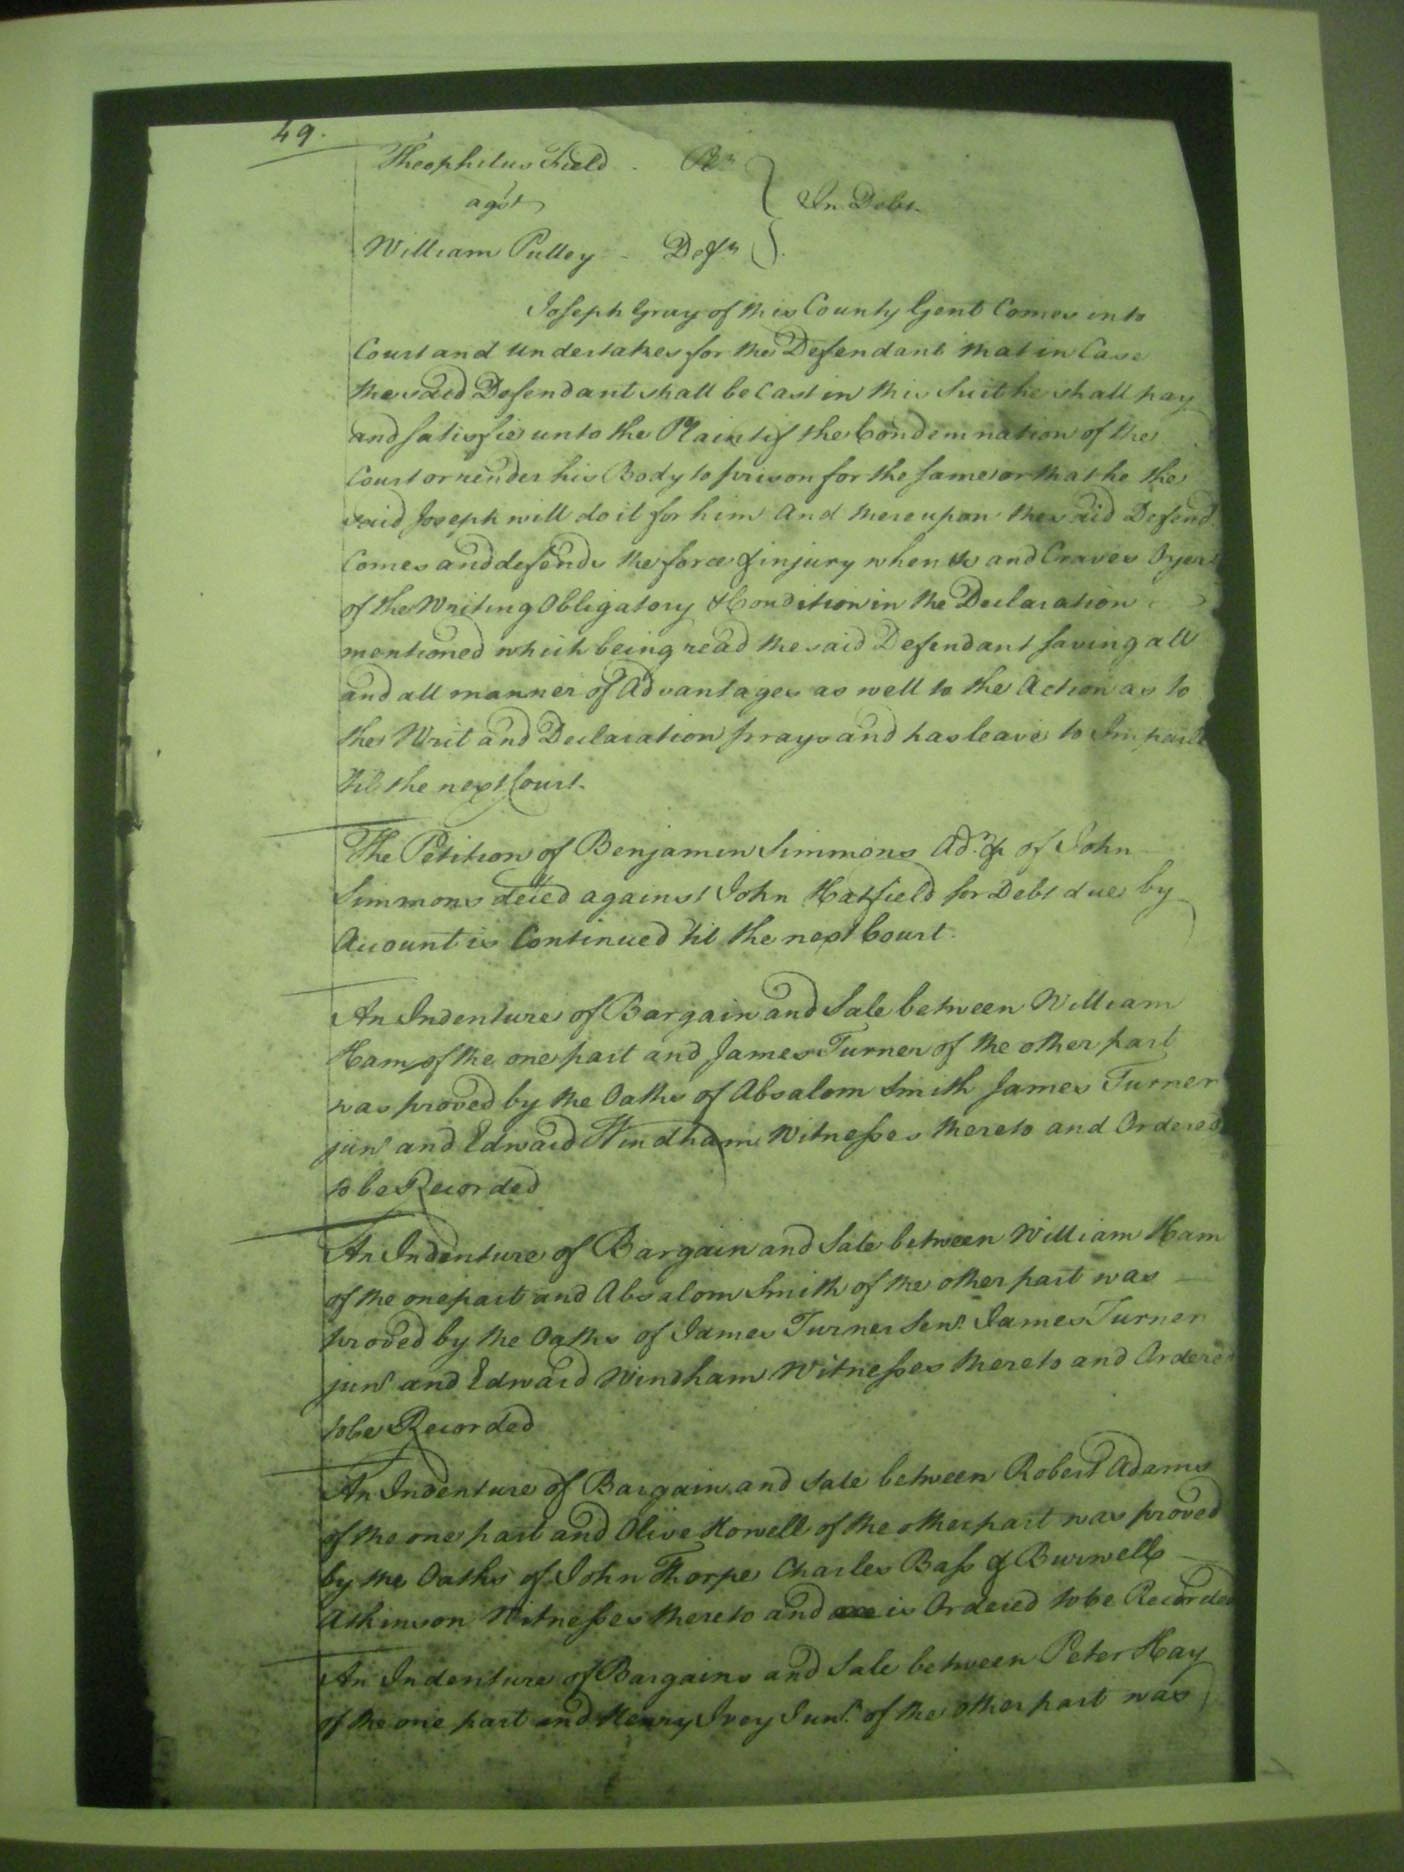 49.
Theophilus Field - Pltr
agst } In Debt.
William Pulley - Defr
Joseph Gray of this County Gent Comes into
Court and undertakes for the Defendant that in Case
the said Defendant shall be Cast in this Suit he shall pay
and satisfie unto the Plaintif the Condemnation of the
Court or render his Body to prison for the same or that he the
said Joseph will do it for him And thereupon the said Defend
Comes and defends the force & injury when &c and Craves Oyer
of the Writing Obligatory & Condition in the Declaration
mentioned which being read the said Defendant saving all
and all manner of Advantages as well to the Action as to
the Writ and Declaration prays and has leave to Imparle
till the next Court.
The Petition of Benjamin Simmons Ad.r &c of John
Simmons deced against John Hatfield for Debt due by
Account is Continued 'til the next Court.
An Indenture of Bargain and Sale between William
Ham of the one part and James Turner of the other part
was proved by the Oaths of Absalom Smith James Turner
junr and Edward Windham Witnesses thereto and Ordered
to be Recorded
An Indenture of Bargain and Sale between William Ham
of the one part and Absalom Smith of the other part was
proved by the Oaths of James Turner Senr. James Turner
junr and Edward Windham Witnesses thereto and Ordered
to be Recorded
An Indenture of Bargain and Sale between Robert Adams
of the one part and Olive Howell of the other part was proved
by the Oaths of John Thorpe Charles Bass & Burwell
Atkinson Witnesses thereto and is Ordered to be Recorded
An Indenture of Bargains and Sale between Peter Hay
of the one part and Henry Ivey Junr. of the other part was